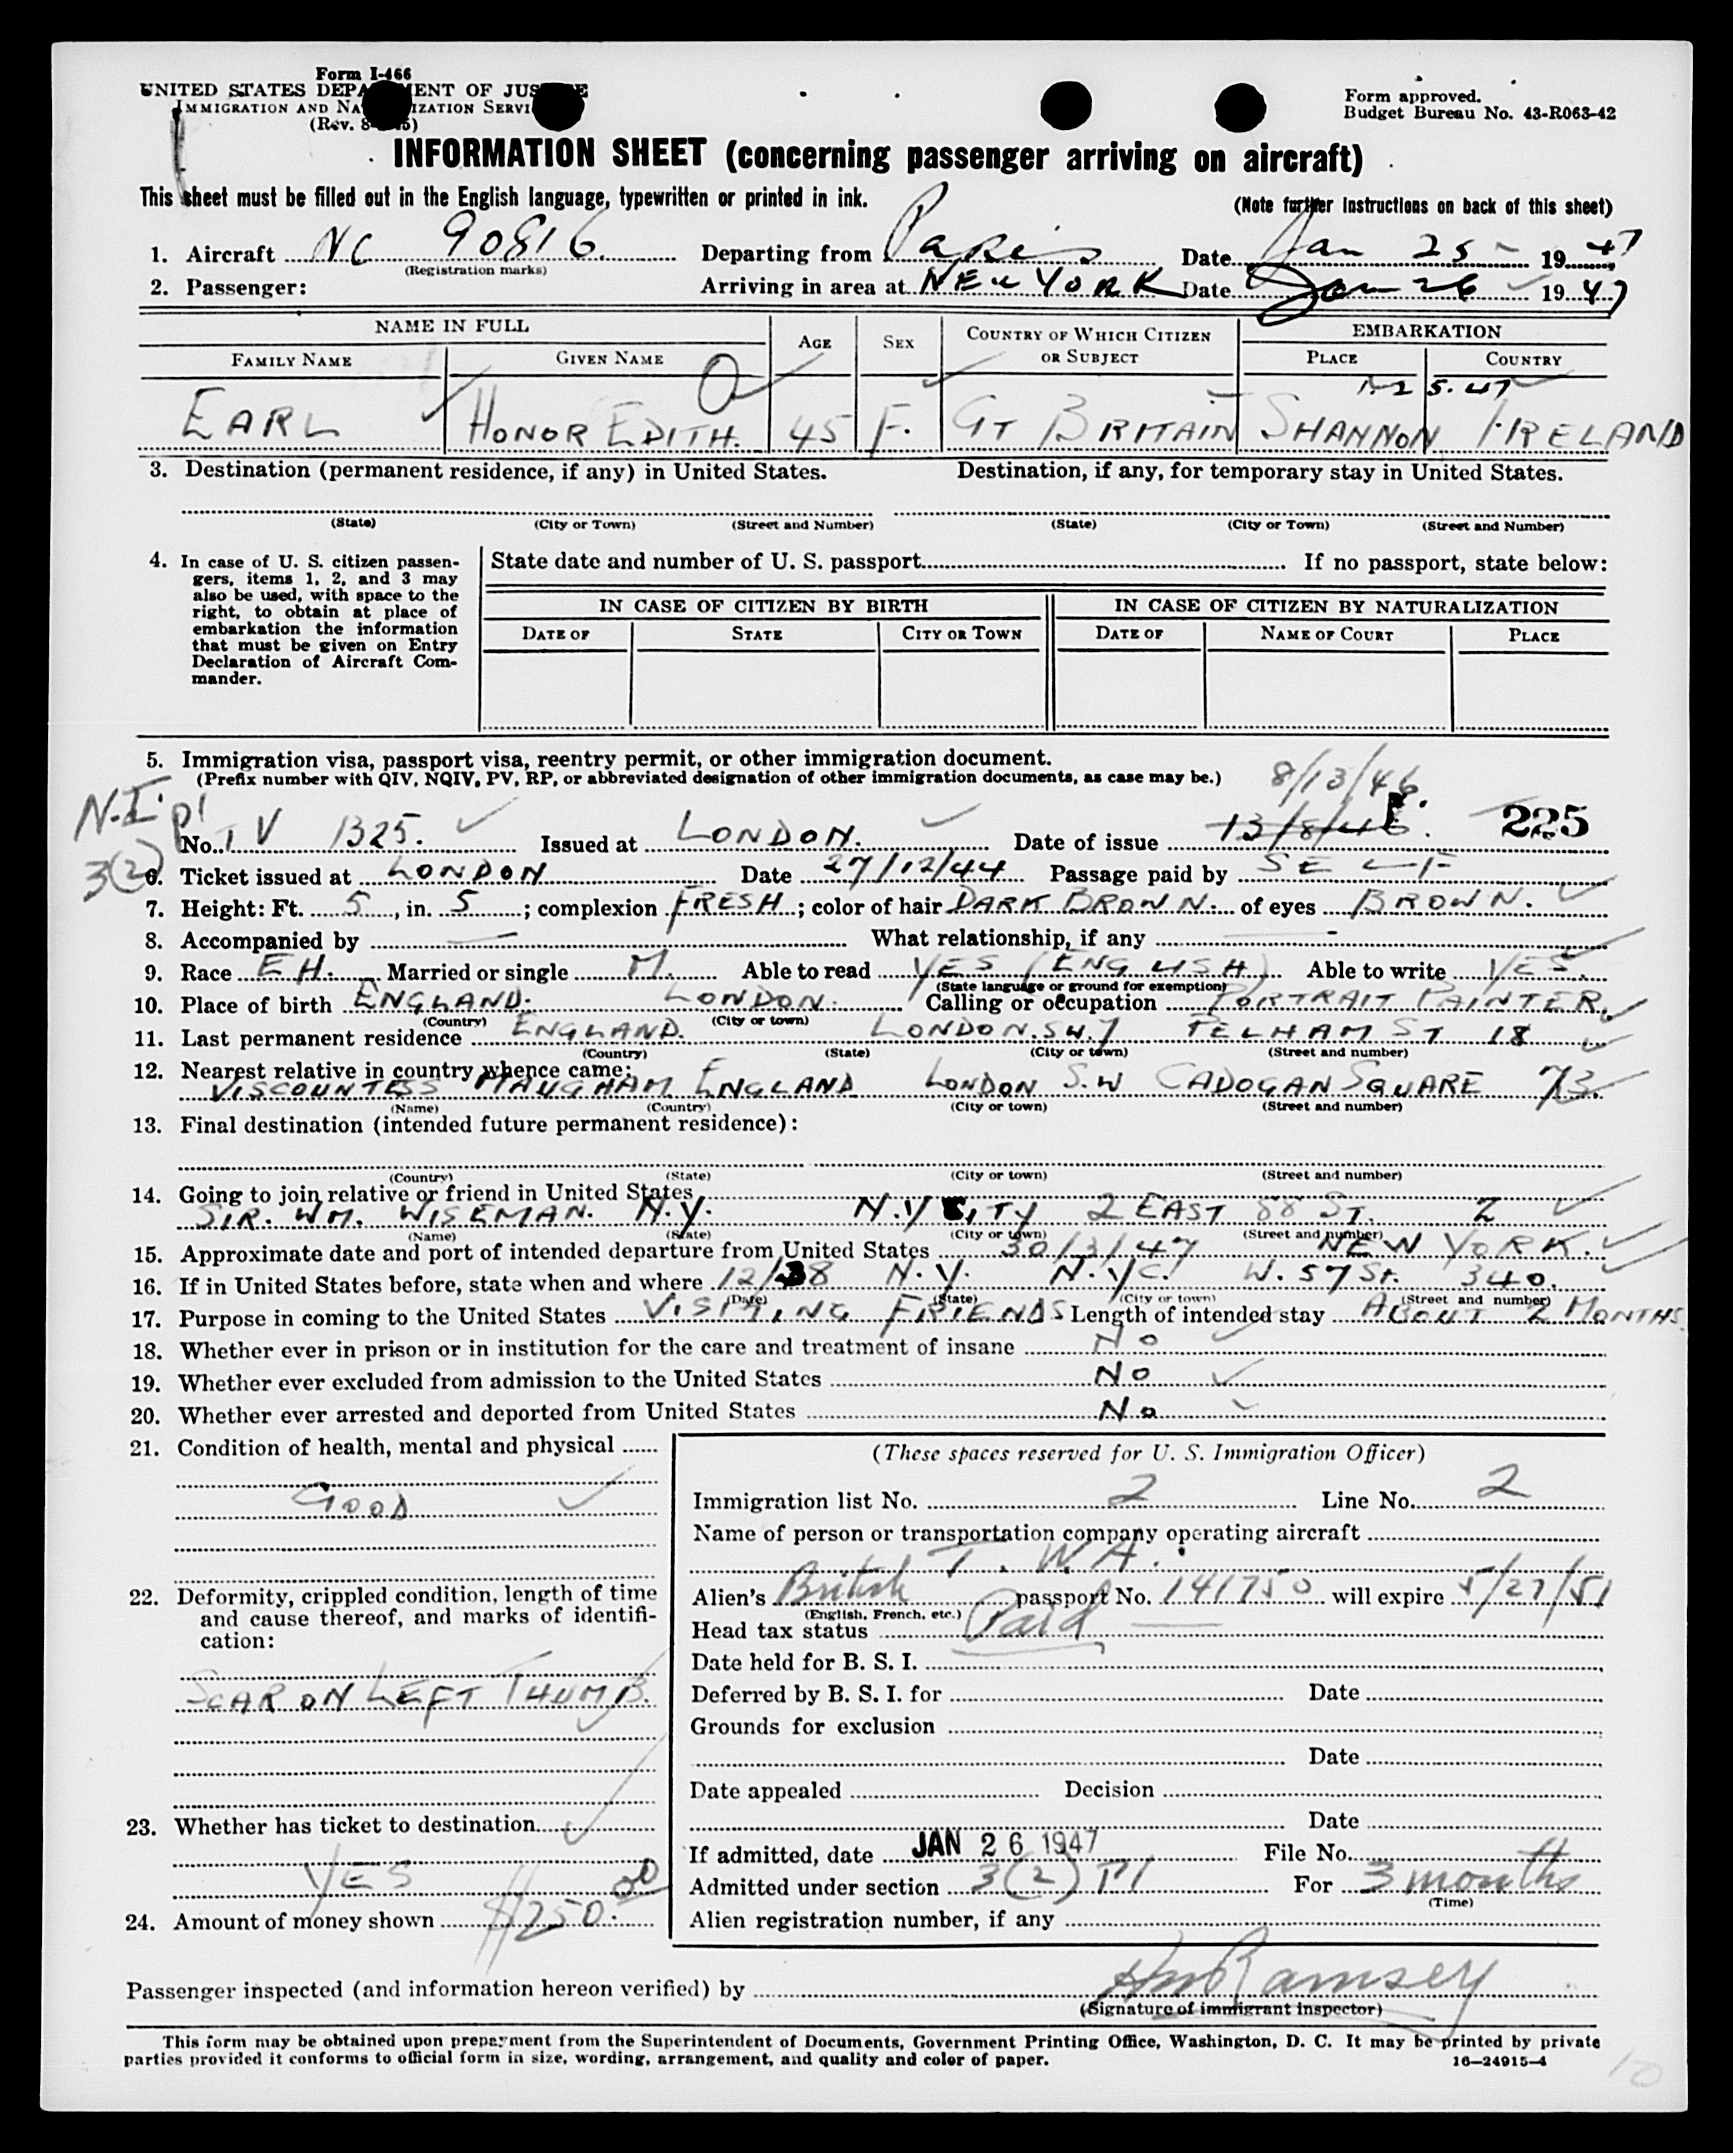 Form I-466
UNITED STATES DEPARTMENT OF JUSTICE
IMMIGRATION AND NATURALIZATION SERVICE
(Rev. 8-    45)
Form approved.
Budget Bureau No. 43-R063-42
INFORMATION SHEET (concerning passenger arriving on aircraft)
This sheet must be filled out in the English language, typewritten or printed in ink.
(Note further instructions on back of this sheet)
1. Aircraft NC 90816. Departing from Paris Date Jan 25 1947
(Registration marks)
2. Passenger: Arriving in area at NEW YORK Date Jan 26 1947
NAME IN FULL AGE SEX COUNTRY OF WHICH CITIZEN OR SUBJECT EMBARKATION
FAMILY NAME GIVEN NAME PLACE COUNTRY
1-25-47
EARL HONOR EDITH. 45 F. GT BRITAIN SHANNON IRELAND
3. Destination (permanent residence, if any) in United States. Destination, if any, for temporary stay in United States.
(State) (City or Town) (Street and Number) (State) (City or Town) (Street and Number)
4. In case of U. S. citizen passengers, items 1, 2, and 3 may also be used, with space to the right, to obtain at place of embarkation the information that must be given on Entry Declaration of Aircraft Commander.
State date and number of U. S. passport If no passport, state below:
IN CASE OF CITIZEN BY BIRTH IN CASE OF CITIZEN BY NATURALIZATION
DATE OF STATE CITY OR TOWN DATE OF NAME OF COURT PLACE
5. Immigration visa, passport visa, reentry permit, or other immigration document.
(Prefix number with QIV, NQIV, PV, RP, or abbreviated designation of other immigration documents, as case may be.)
8/13/46
N.I. P1
No. TV 1325. Issued at LONDON. Date of issue 13/8/46. 225
3(2)
6. Ticket issued at LONDON Date 27/12/44 Passage paid by SELF
7. Height: Ft. 5, in. 5; complexion FRESH; color of hair DARK BROWN. of eyes BROWN.
8. Accompanied by — What relationship, if any —
9. Race EH. Married or single M. Able to read YES (ENGLISH) Able to write YES.
(State language or ground for exemption)
10. Place of birth ENGLAND. LONDON. Calling or occupation PORTRAIT PAINTER.
(Country) (City or town)
11. Last permanent residence ENGLAND. LONDON. S.W.7 PELHAM ST 18
(Country) (State) (City or town) (Street and number)
12. Nearest relative in country whence came:
VISCOUNTESS MAUGHAM ENGLAND LONDON S.W CADOGAN SQUARE 73.
(Name) (Country) (City or town) (Street and number)
13. Final destination (intended future permanent residence):
(Country) (State) (City or town) (Street and number)
14. Going to join relative or friend in United States
SIR. WM. WISEMAN. N.Y. N.Y CITY 2 EAST 88 ST. 2
(Name) (State) (City or town) (Street and number)
15. Approximate date and port of intended departure from United States 30/3/47 NEW YORK.
16. If in United States before, state when and where 12/38 N.Y. N.Y.C. W. 57 St. 340.
(Date) (State) (City or town) (Street and number)
17. Purpose in coming to the United States VISITING FRIENDS Length of intended stay ABOUT 2 MONTHS.
18. Whether ever in prison or in institution for the care and treatment of insane NO
19. Whether ever excluded from admission to the United States NO
20. Whether ever arrested and deported from United States No
21. Condition of health, mental and physical
GOOD
22. Deformity, crippled condition, length of time and cause thereof, and marks of identification:
SCAR ON LEFT THUMB.
23. Whether has ticket to destination
YES
24. Amount of money shown $250.00
(These spaces reserved for U. S. Immigration Officer)
Immigration list No. 2 Line No. 2
Name of person or transportation company operating aircraft
T. W. A.
Alien's British passport No. 141750 will expire 5/27/51
(English, French, etc.)
Head tax status Paid —
Date held for B. S. I.
Deferred by B. S. I. for Date
Grounds for exclusion
Date
Date appealed Decision
Date
If admitted, date JAN 26 1947 File No.
Admitted under section 3(2) P1 For 3 months
(Time)
Alien registration number, if any
Passenger inspected (and information hereon verified) by Ramsey
(Signature of immigrant inspector)
This form may be obtained upon prepayment from the Superintendent of Documents, Government Printing Office, Washington, D. C. It may be printed by private
parties provided it conforms to official form in size, wording, arrangement, and quality and color of paper. 16—24915-4
10